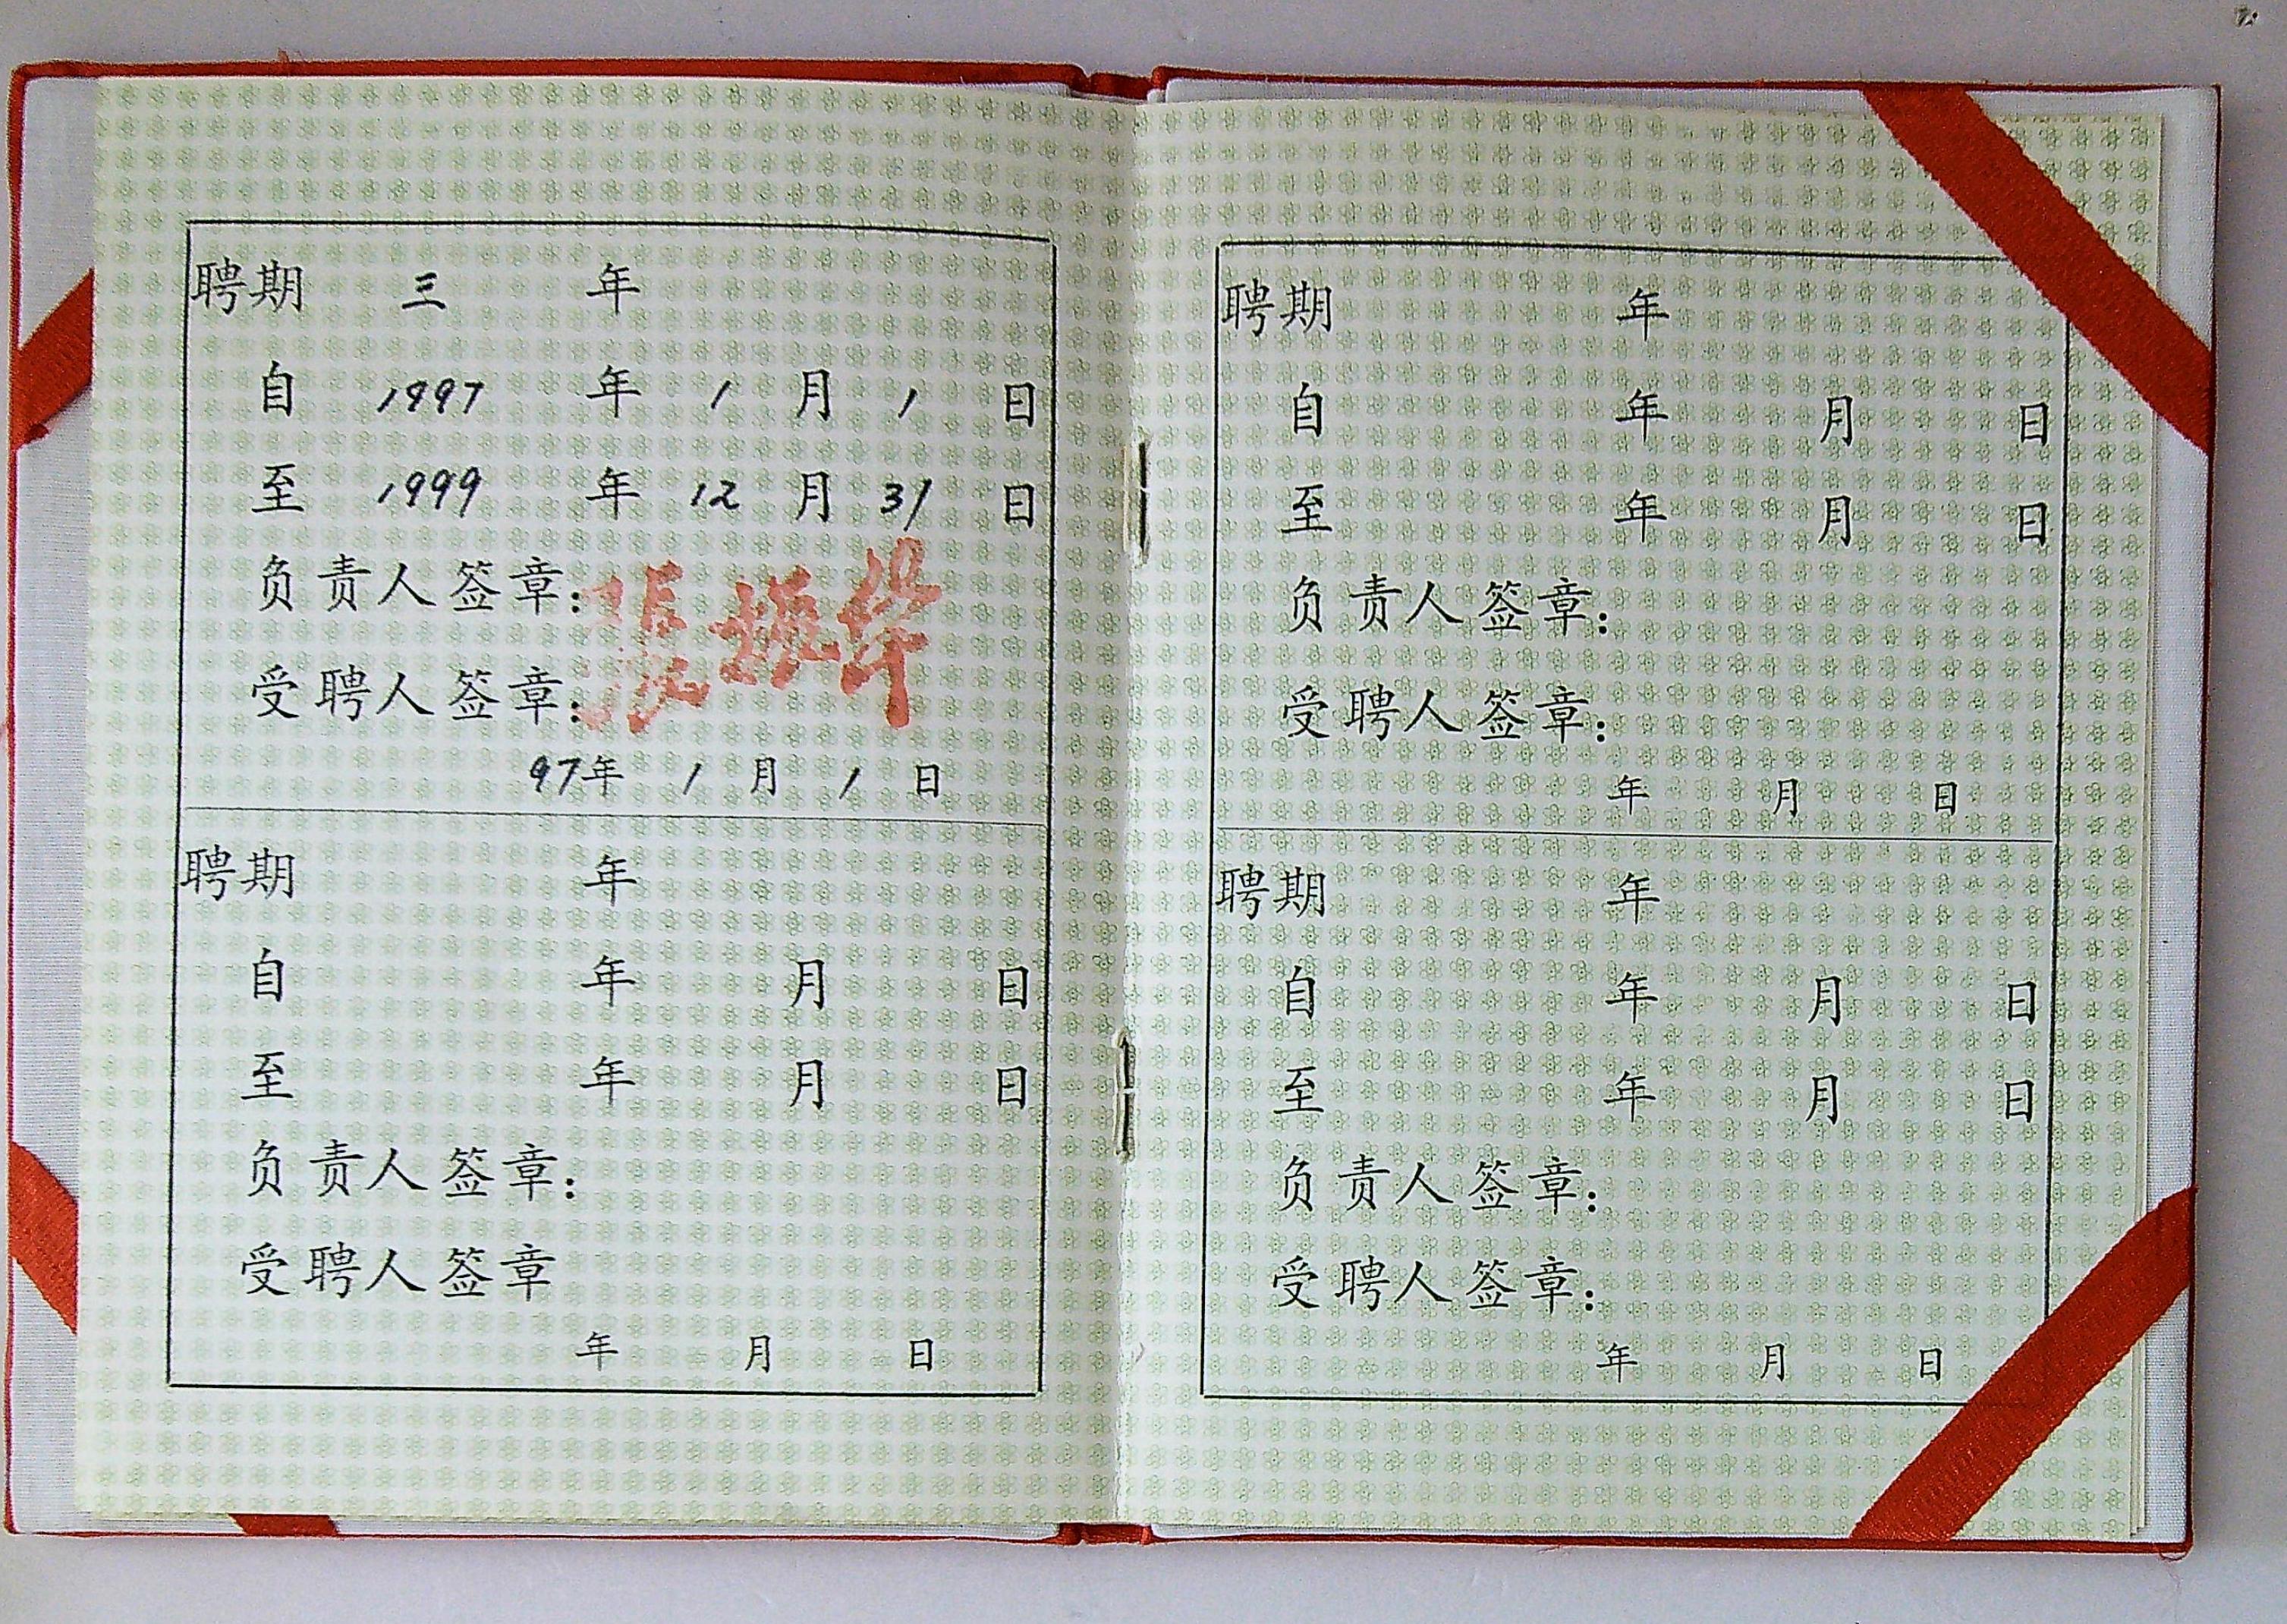 聘期 三 年
自 1997 年 1 月 1 日
至 1999 年 12 月 31 日
负责人签章:
受聘人签章:
97年 1 月 1 日
聘期 年
自 年 月 日
至 年 月 日
负责人签章:
受聘人签章
年 月 日
聘期 年
自 年 月 日
至 年 月 日
负责人签章:
受聘人签章:
年 月 日
聘期 年
自 年 月 日
至 年 月 日
负责人签章:
受聘人签章:
年 月 日